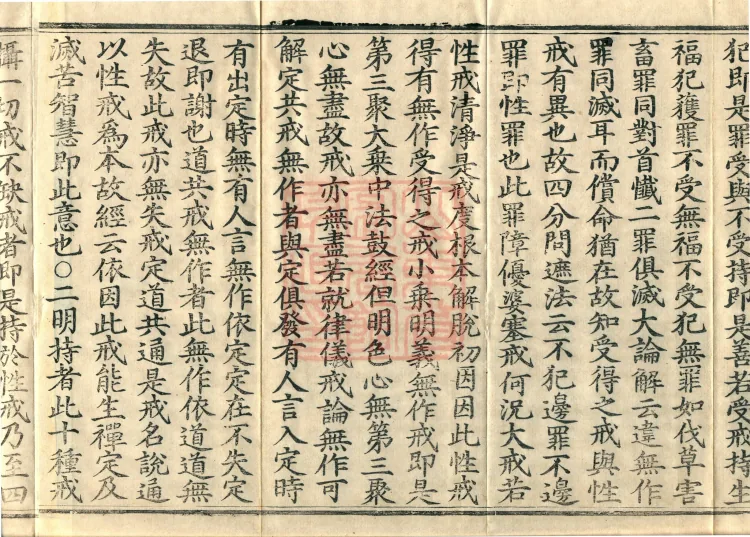 犯即是罪受與不受持即是善若受戒持生
福犯獲罪不受無福不受犯無罪如伐草害
畜罪同對首懺二罪俱滅大論解云違無作
罪同滅耳而償命猶在故知受得之戒與性
戒有異也故四分問遮法云不犯邊罪不邊
罪即性罪也此罪障優婆塞戒何況大戒若
性戒清淨是戒度根本解脫初因因此性戒
得有無作受得之戒小乘明義無作戒即是
第三聚大乘中法鼓經但明色心無第三聚
心無盡故戒亦無盡若就律儀戒論無作可
解定共戒無作者與定俱發有人言入定時
有出定時無有人言無作依定定在不失定
退即謝也道共戒無作者此無作依道道無
失故此戒亦無失戒定道共通是戒名說通
以性戒為本故經云依因此戒能生禪定及
滅苦智慧即此意也○二明持者此十種戒
攝一切戒不缺戒者即是持於性戒乃至四